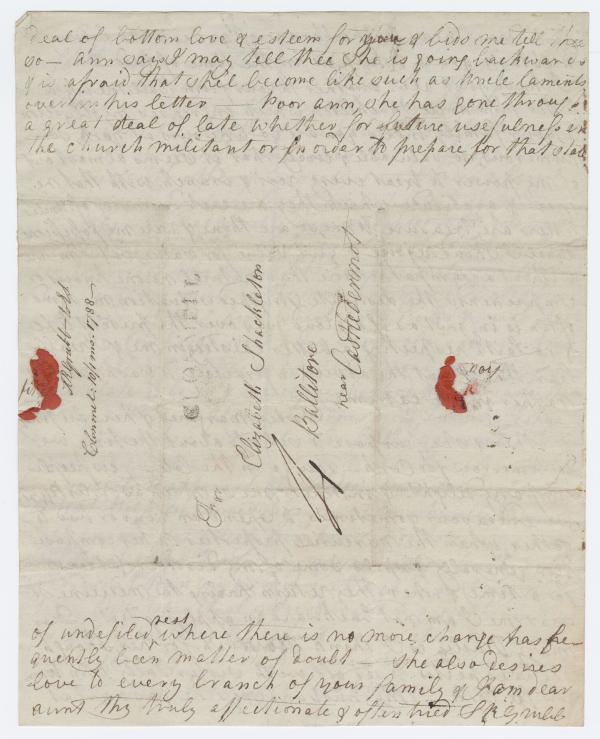 deal of bottom love & esteem for you & bids me tell thee
so — ann says I may tell thee She is going backwards
& is afraid that she'l become like such as Uncle laments
over in his letter — Poor ann, she has gone through
a great deal of late whether for future usefulness in
the church militant or in order to prepare for that state
S R Grubb
Clonmel: 1788 —
CLONMELL
For
Elizabeth Shackleton
Ballitore
near
Castledermot
of undefiled rest where there is no more change has fre-
quently been matter of doubt — She also desires
love to every branch of your family & I am dear
aunt thy truly affectionate & often tried S R Grubb